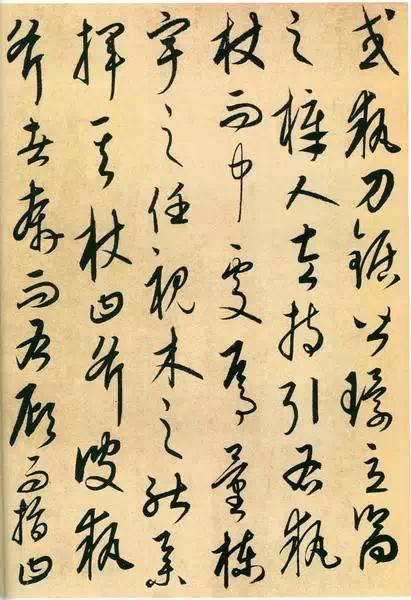 或執刀鋸皆環立向
之梓人左持引右執
杖而中處焉量棟
宇之任視木之能舉
揮其杖曰斧彼執
斧者奔而右顧而指曰